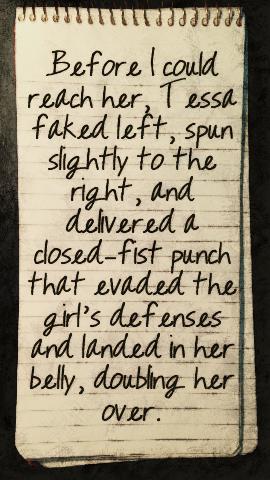 Before I could
reach her, Tessa
faked left, spun
slightly to the
right, and
delivered a
closed-fist punch
that evaded the
girl's defenses
and landed in her
belly, doubling her
over.